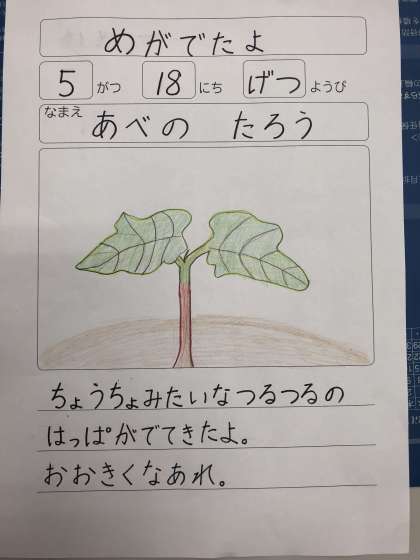 めがでたよ
5 がつ 18 にち げつ ようび
なまえ
あべの たろう
ちょうちょみたいなつるつるの
はっぱがでてきたよ。
おおきくなあれ。